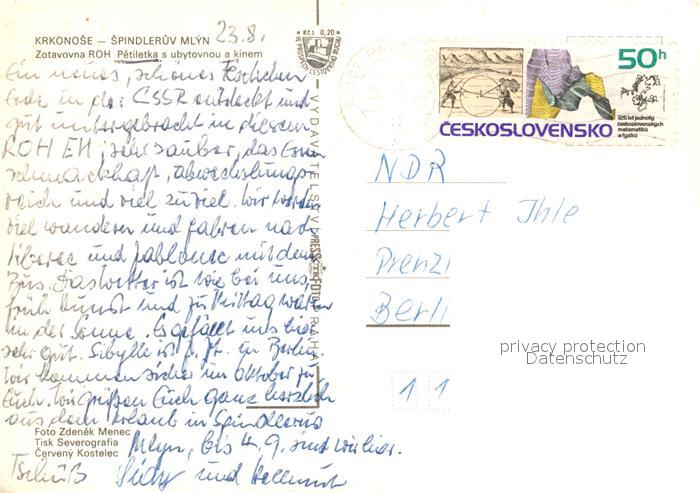 23.8.
KRKONOŠE – ŠPINDLERŮV MLÝN
Zotavovna ROH Pětiletka s ubytovnou a kinem
Ein neues, schönes Fleckchen
Erde in der ČSSR entdeckt und
gut untergebracht in diesem
ROH EH, sehr sauber, das Essen
schmackhaft, abwechslungs-
reich und viel zu viel. Wir werden
viel wandern und fahren nach
Liberec und Jablonec mit dem
Bus. Das Wetter ist wie bei uns,
früh Dunst und zu Mittag waten
in der Sonne. Es gefällt uns hier
sehr gut. Sibylle ist z. Zt. in Berlin.
Wir kommen sicher im Oktober zu
Euch. Wir grüßen Euch ganz herzlich
aus dem Urlaub in Spindlerus
Mlyn, bis 4.9. sind wir hier.
Tschüß und Hellmut
Foto Zdeněk Menec
Tisk Severografia
Červený Kostelec
Kčs 0,20
VYDAVATELSTVÍ PRESSFOTO PRAHA
50h
ČESKOSLOVENSKO
125 let jednoty
československých
matematiků
a fyziků
NDR
Herbert Ihle
Prenzl
Berli
1 1
privacy protection
Datenschutz